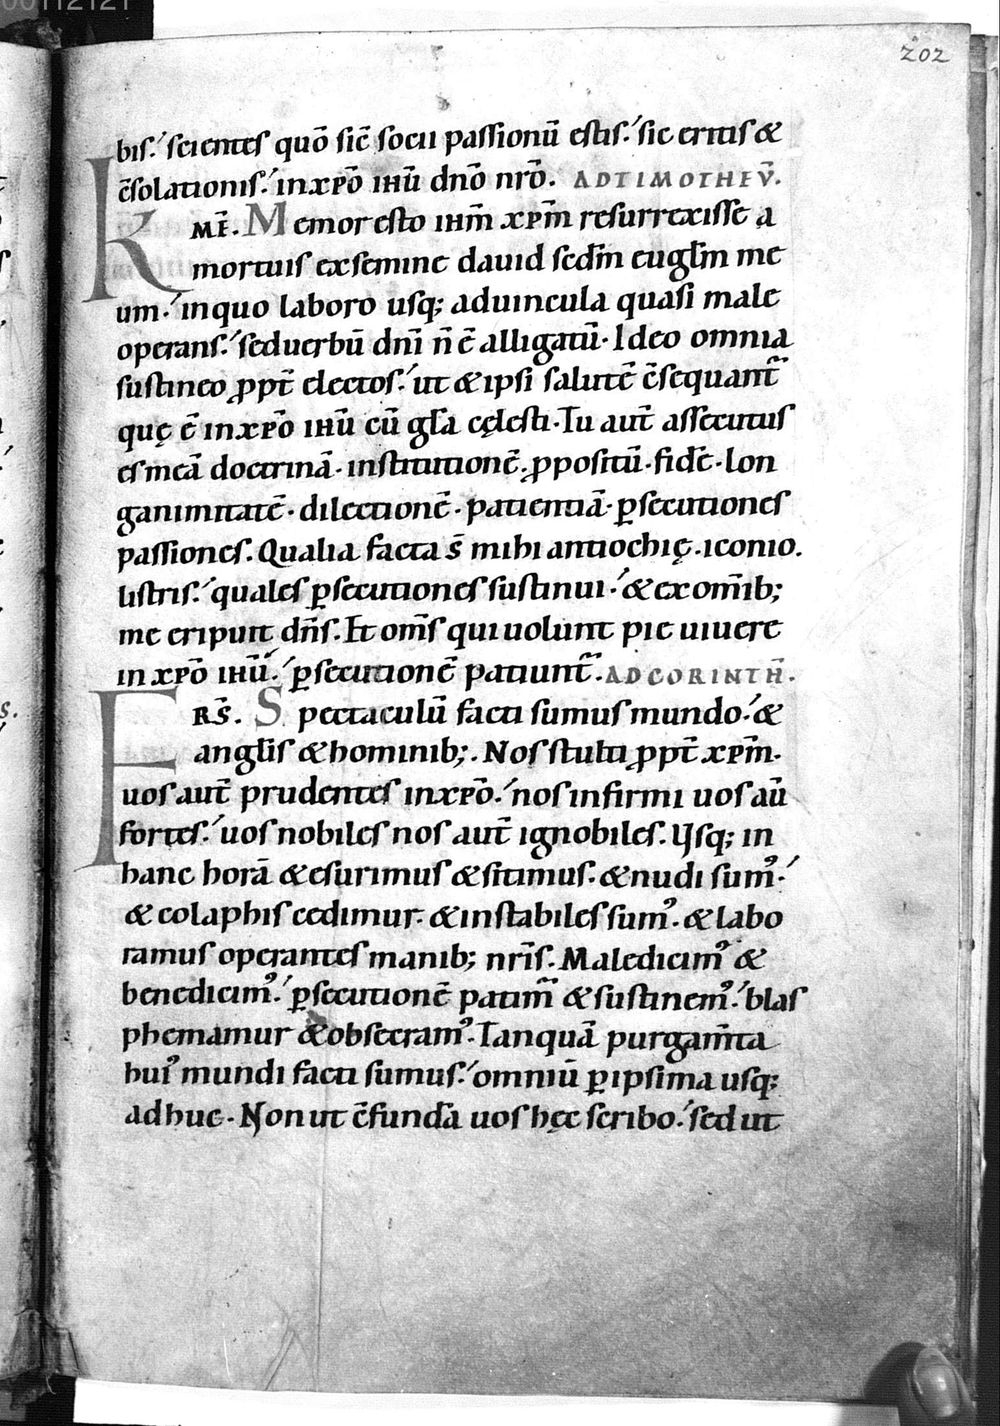 00112121
202
bis. scientes quō sic̄ socii passionū estis. sic eritis &
c̄solationis. in xp̄o ihū dn̄o nr̄o. AD TIMOTHEV̄.
K MĪ. Memor esto ihm̄ xpm̄ resurrexisse a
mortuis ex semine dauid scdm̄ euglm̄ me
um. in quo laboro usq; ad uincula quasi male
operans. sed uerbū dnī n̄ ē alligatū. Ideo omnia
sustineo ꝓpt̄ electos. ut & ipsi salutē c̄sequant̄
quę ē in xp̄o ihū cū gl̄a cęlesti. Tu aut̄ assecutus
es meā doctrinā. institutionē. ꝓpositū. fidē. lon
ganimitatē. dilectionē. patientiā. ꝑsecutiones
passiones. Qualia facta s̄ mihi antiochię. iconio.
listris. quales ꝑsecutiones sustinui. & ex omīb;
me eripuit dn̄s. Et om̄s qui uolunt pie uiuere
in xp̄o ihū. ꝑsecutionē patiunt̄. AD CORINTH̄.
F RS̄. Spectaculū facti sumus mundo. &
anglīs & hominib;. Nos stulti ꝓpt̄ xpm̄.
uos aut̄ prudentes in xp̄o. nos infirmi uos aū
fortes. uos nobiles nos aut̄ ignobiles. Usq; in
hanc horā & esurimus & sitimus. & nudi sumꝰ.
& colaphis cedimur. & instabiles sumꝰ. & labo
ramus operantes manib; nr̄is. Maledicimꝰ &
benedicimꝰ. ꝑsecutionē patim̄ & sustinemꝰ. blas
phemamur & obsecramꝰ. Tanquā purgam̄ta
huiꝰ mundi facti sumus. omniū ꝑipsima usq;
adhuc. Non ut c̄fundā uos hęc scribo. sed ut